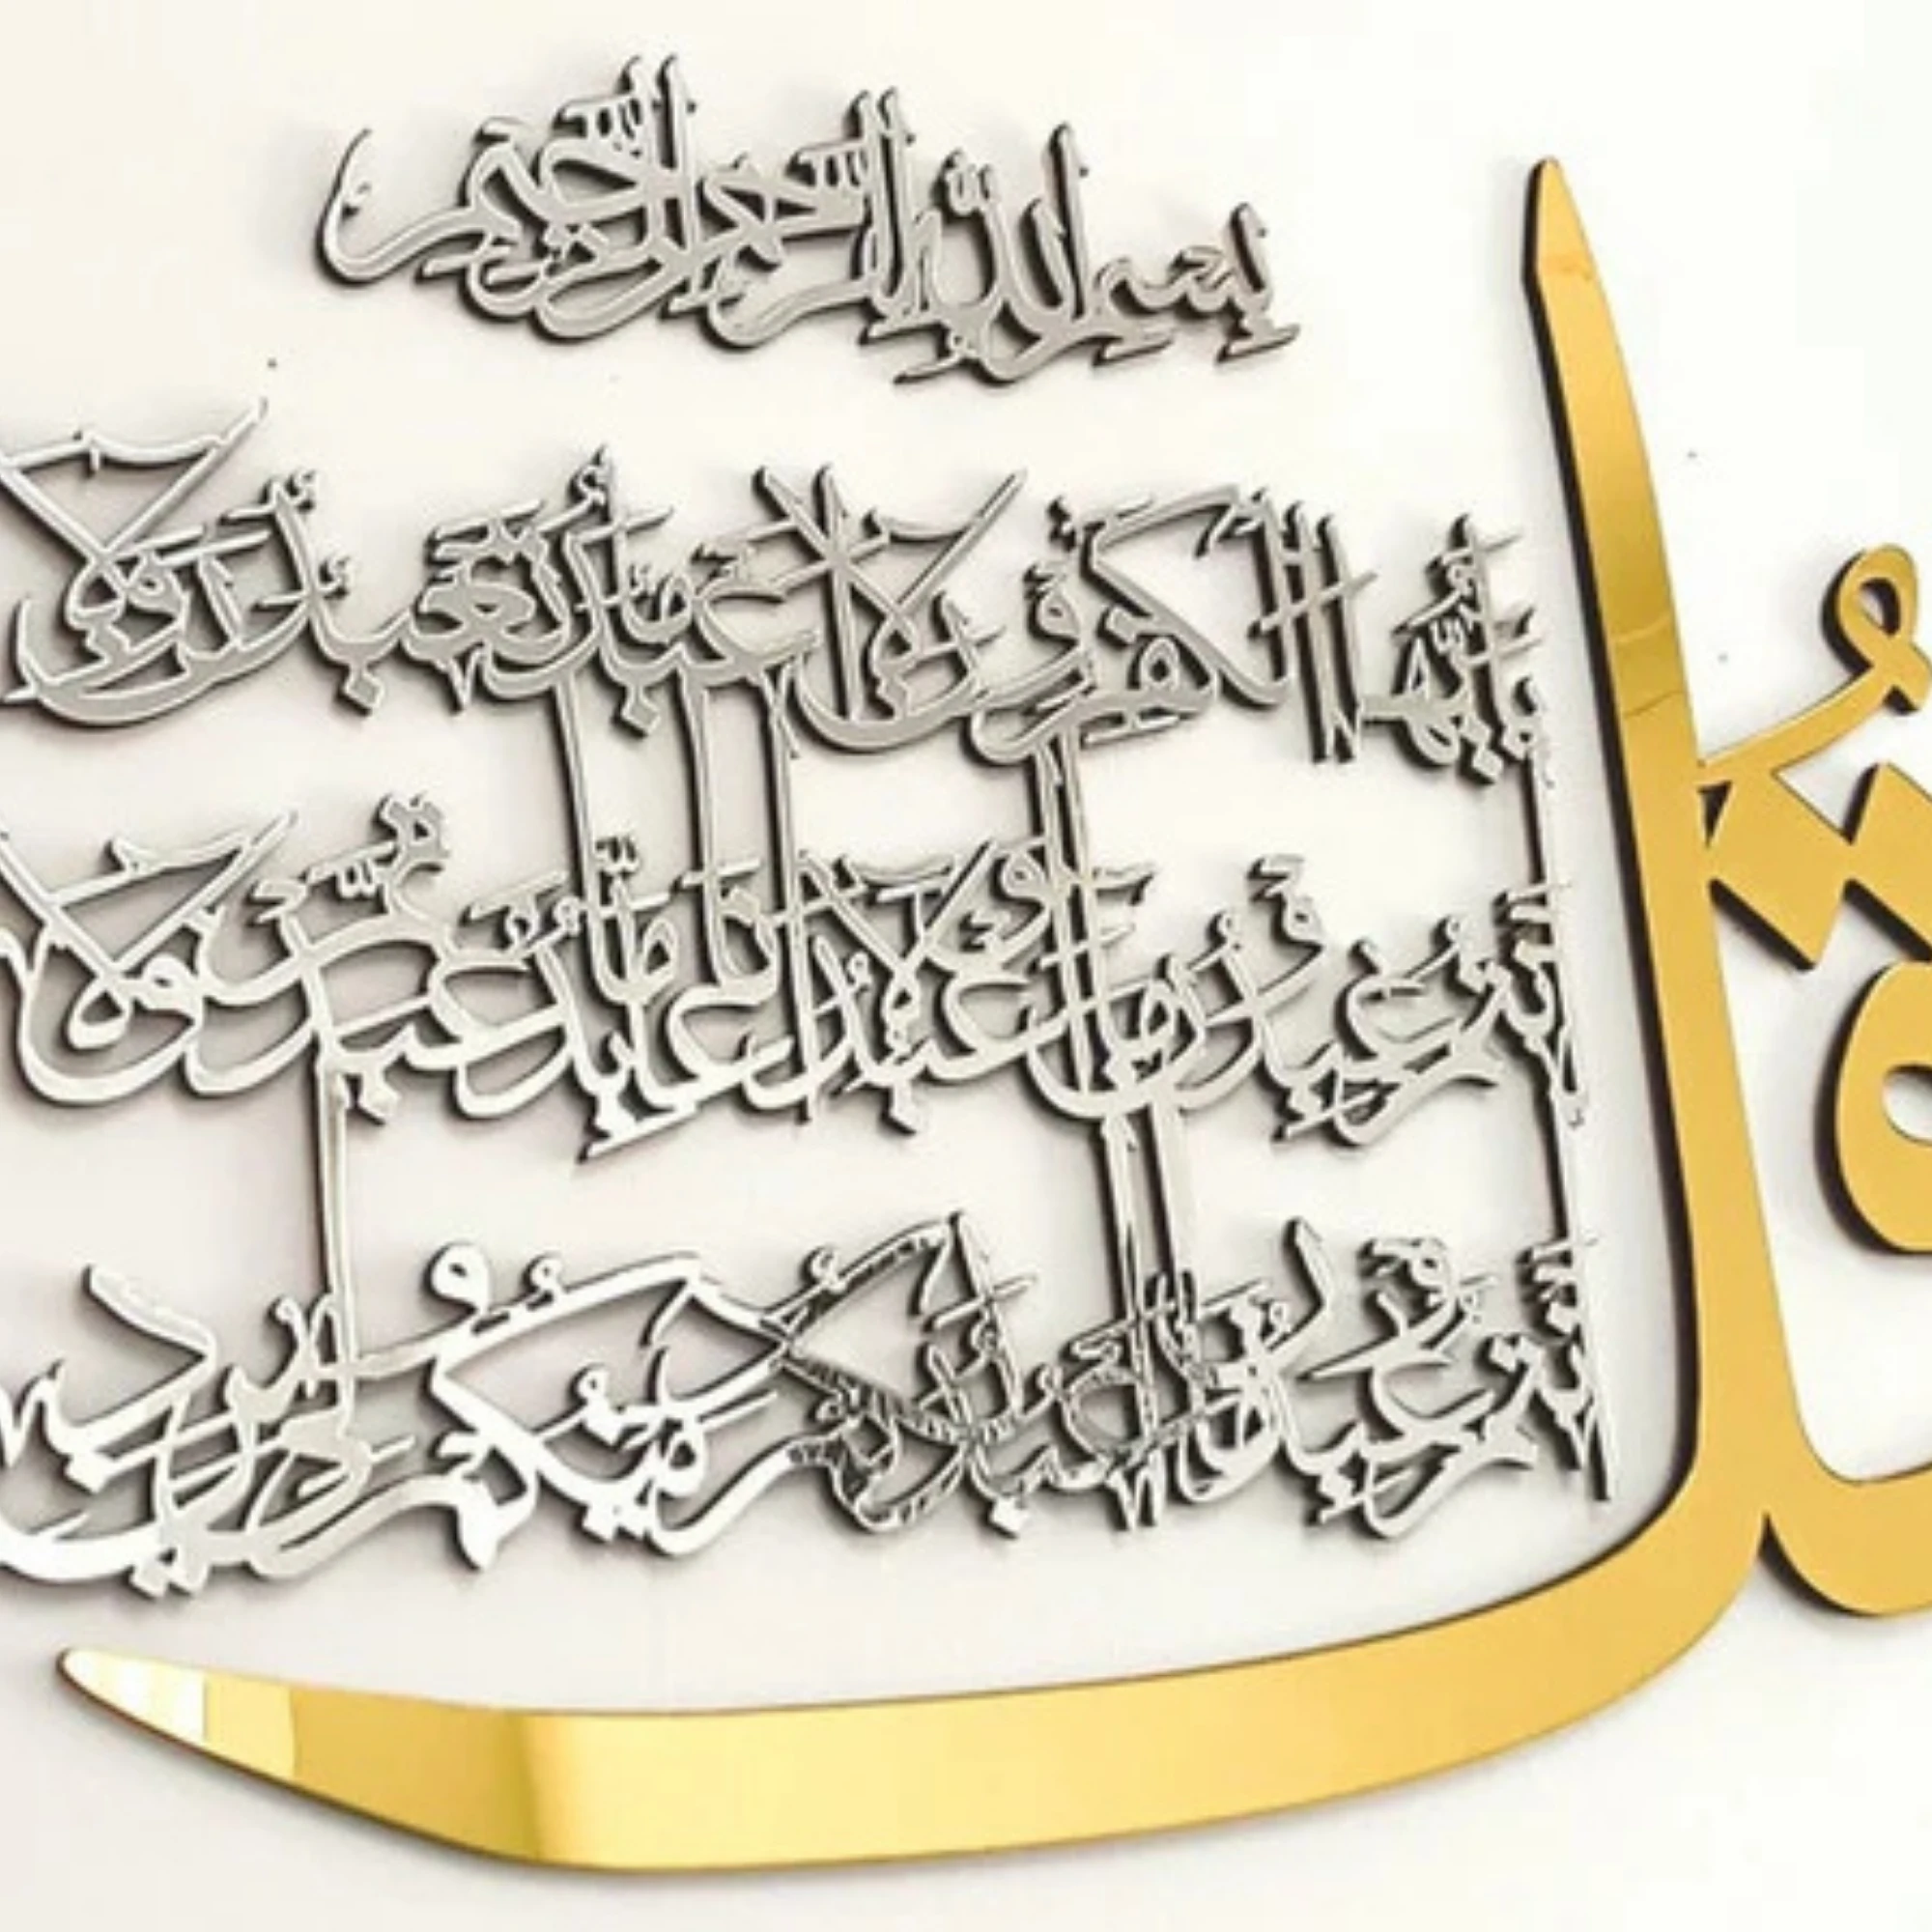 قُلْ
بِسْمِ اللّٰهِ الرَّحْمٰنِ الرَّحِيمِ
يَا أَيُّهَا الْكٰفِرُونَ لَا أَعْبُدُ مَا تَعْبُدُونَ وَلَا
أَنْتُمْ عٰبِدُونَ مَا أَعْبُدُ وَلَا أَنَا عَابِدٌ مَّا عَبَدْتُّمْ وَلَا
أَنْتُمْ عٰبِدُونَ مَا أَعْبُدُ لَكُمْ دِينُكُمْ وَلِيَ دِينِ